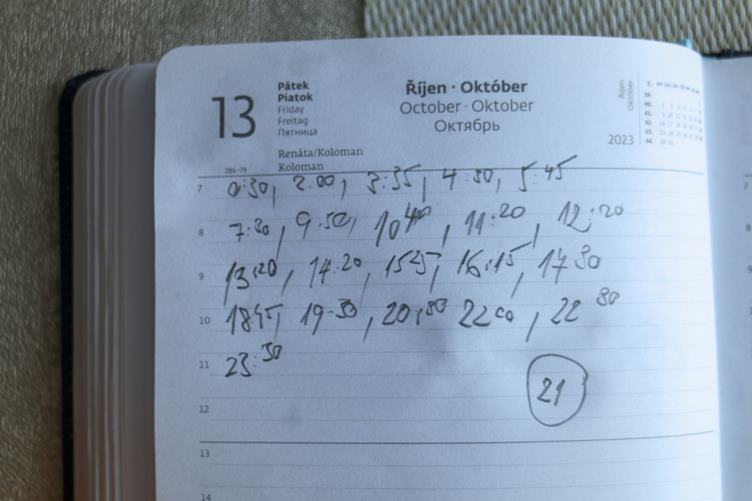 13
Pátek
Piatok
Friday
Freitag
Пятница
Renáta/Koloman
Koloman
286-79
Říjen · Október
October · Oktober
Октябрь
Říjen
Október
2023
7 0:30, 2:00, 3:35, 4:30, 5:45
8 7:30, 9:50, 10 40, 11:20, 12:20
9 13:20, 14:20, 15 25, 16:15, 17 30
10 18 45, 19:30, 20:30 22 00, 22 30
11 23:30
21
12
13
14